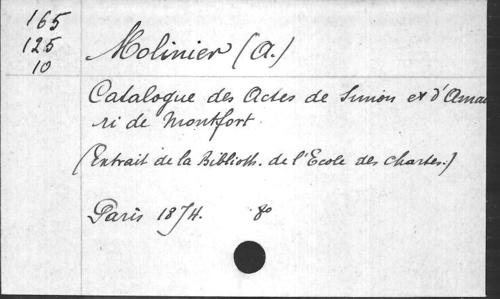 165
125
10
Molinier (A.)
Catalogue des Actes de Simon et d'Amau
ri de Montfort
(Extrait de la Biblioth. de l'Ecole des Chartes.)
Paris 1874. 8o